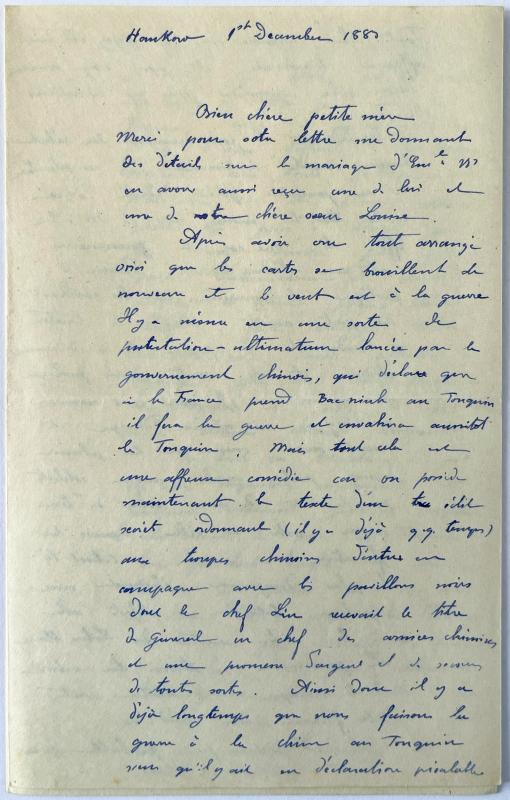 Hankow 1st December 1883
Bien chère petite mère
Merci pour votre lettre me donnant
des détails sur le mariage d'Emile. N
en avons aussi reçu une de lui et
une de notre chère sœur Louise.
Après avoir cru tout arrangé
voici que les cartes se brouillent de
nouveau et le vent est à la guerre
Il y a même eu une sorte de
protestation-ultimatum lancée par le
gouvernement chinois, qui déclare que
si la France prend Bac ninh au Tonquin
il fera la guerre et envahira aussitôt
le Tonquin. Mais tout cela est
une affreuse comédie car on possède
maintenant le texte d'un édit
secret ordonnant (il y a déjà q.q. temps)
aux troupes chinoises d'entrer en
campagne avec les pavillons noirs
dont le chef Liu recevait le titre
de général en chef des armées chinoises
et une promesse d'argent et de secours
de toutes sortes. Ainsi donc il y a
déjà longtemps que nous faisons la
guerre à la chine au Tonquin
sans qu'il y ait eu déclaration préalable